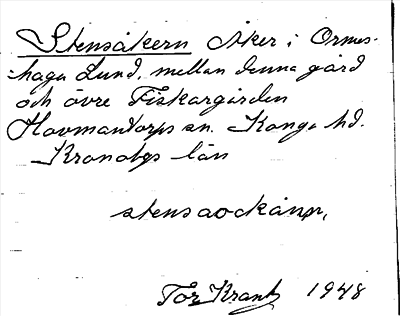 Stensåkern Åker i Ormes-
haga Lund, mellan denna gård
och övre Fiskargården
Hovmantorps sn. Konga hd.
Kronobgs län
stensaockånpr,
Tor Krantz 1948